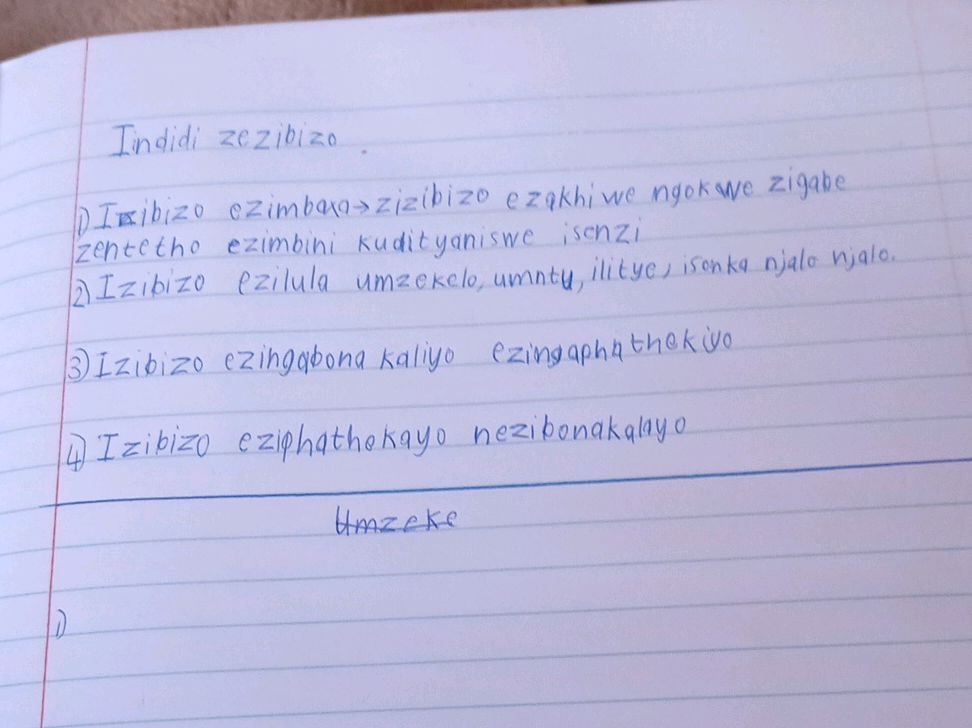 Iindidi zezibizo.
1) Izibizo ezimbaxa → zizibizo ezakhiwe ngokwe zigabe
zentetho ezimbini kudityaniswe isenzi
2) Izibizo ezilula umzekelo, umntu, ilitye, isonka njalo njalo.
3) Izibizo ezingabona kaliyo ezingaphathekiyo
4) Izibizo eziphathekayo nezibonakalayo
Umzeke
1)